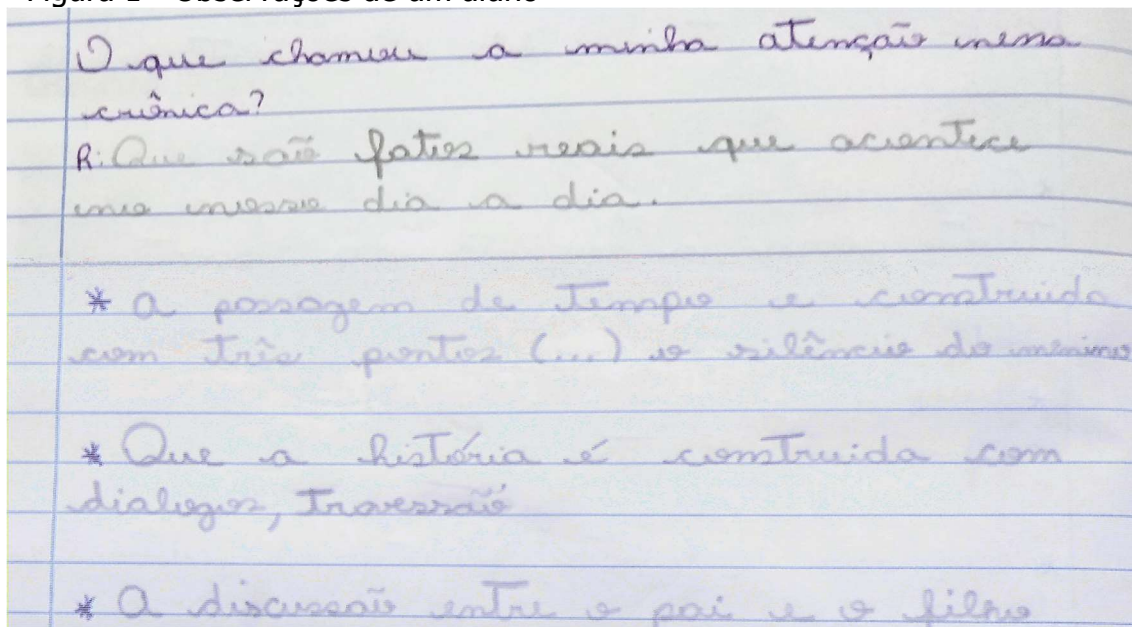 Figura 1 – Observações de um aluno
O que chamou a minha atenção nena
crônica?
R: Que são fatos reais que acontece
no nosso dia a dia.
* A passagem de tempo e construida
com três pontos (...) o silêncio do menino
* Que a história é construida com
dialogos, Travessão
* A discussão entre o pai e o filho